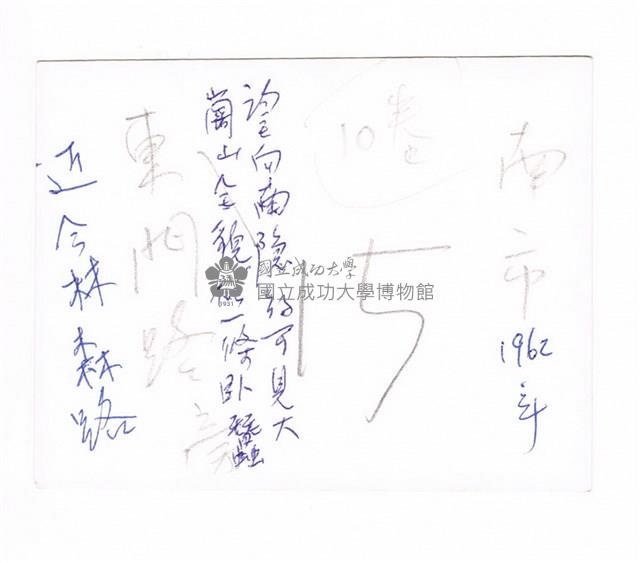 南市
1962年
10卷
望向南隱約可見大
崗山全貌如一條臥蠶
東門路
近今林森路
國立成功大學
國立成功大學博物館
1931